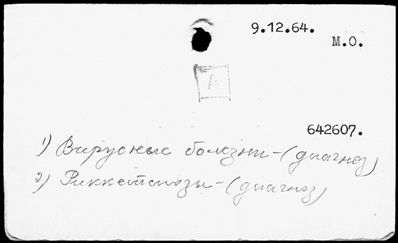 9.12.64.
М.О.
А
642607.
1) Вирусные болезни-(диагноз)
2) Риккетсиозы-(диагноз)